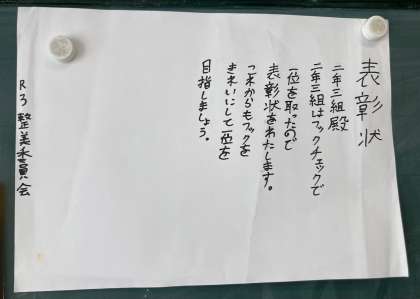 表彰状
二年三組殿
二年三組はフックチェックで
一位を取ったので
表彰状をわたします。
これからもフックを
きれいにして一位を
目指しましょう。
R3 整美委員会